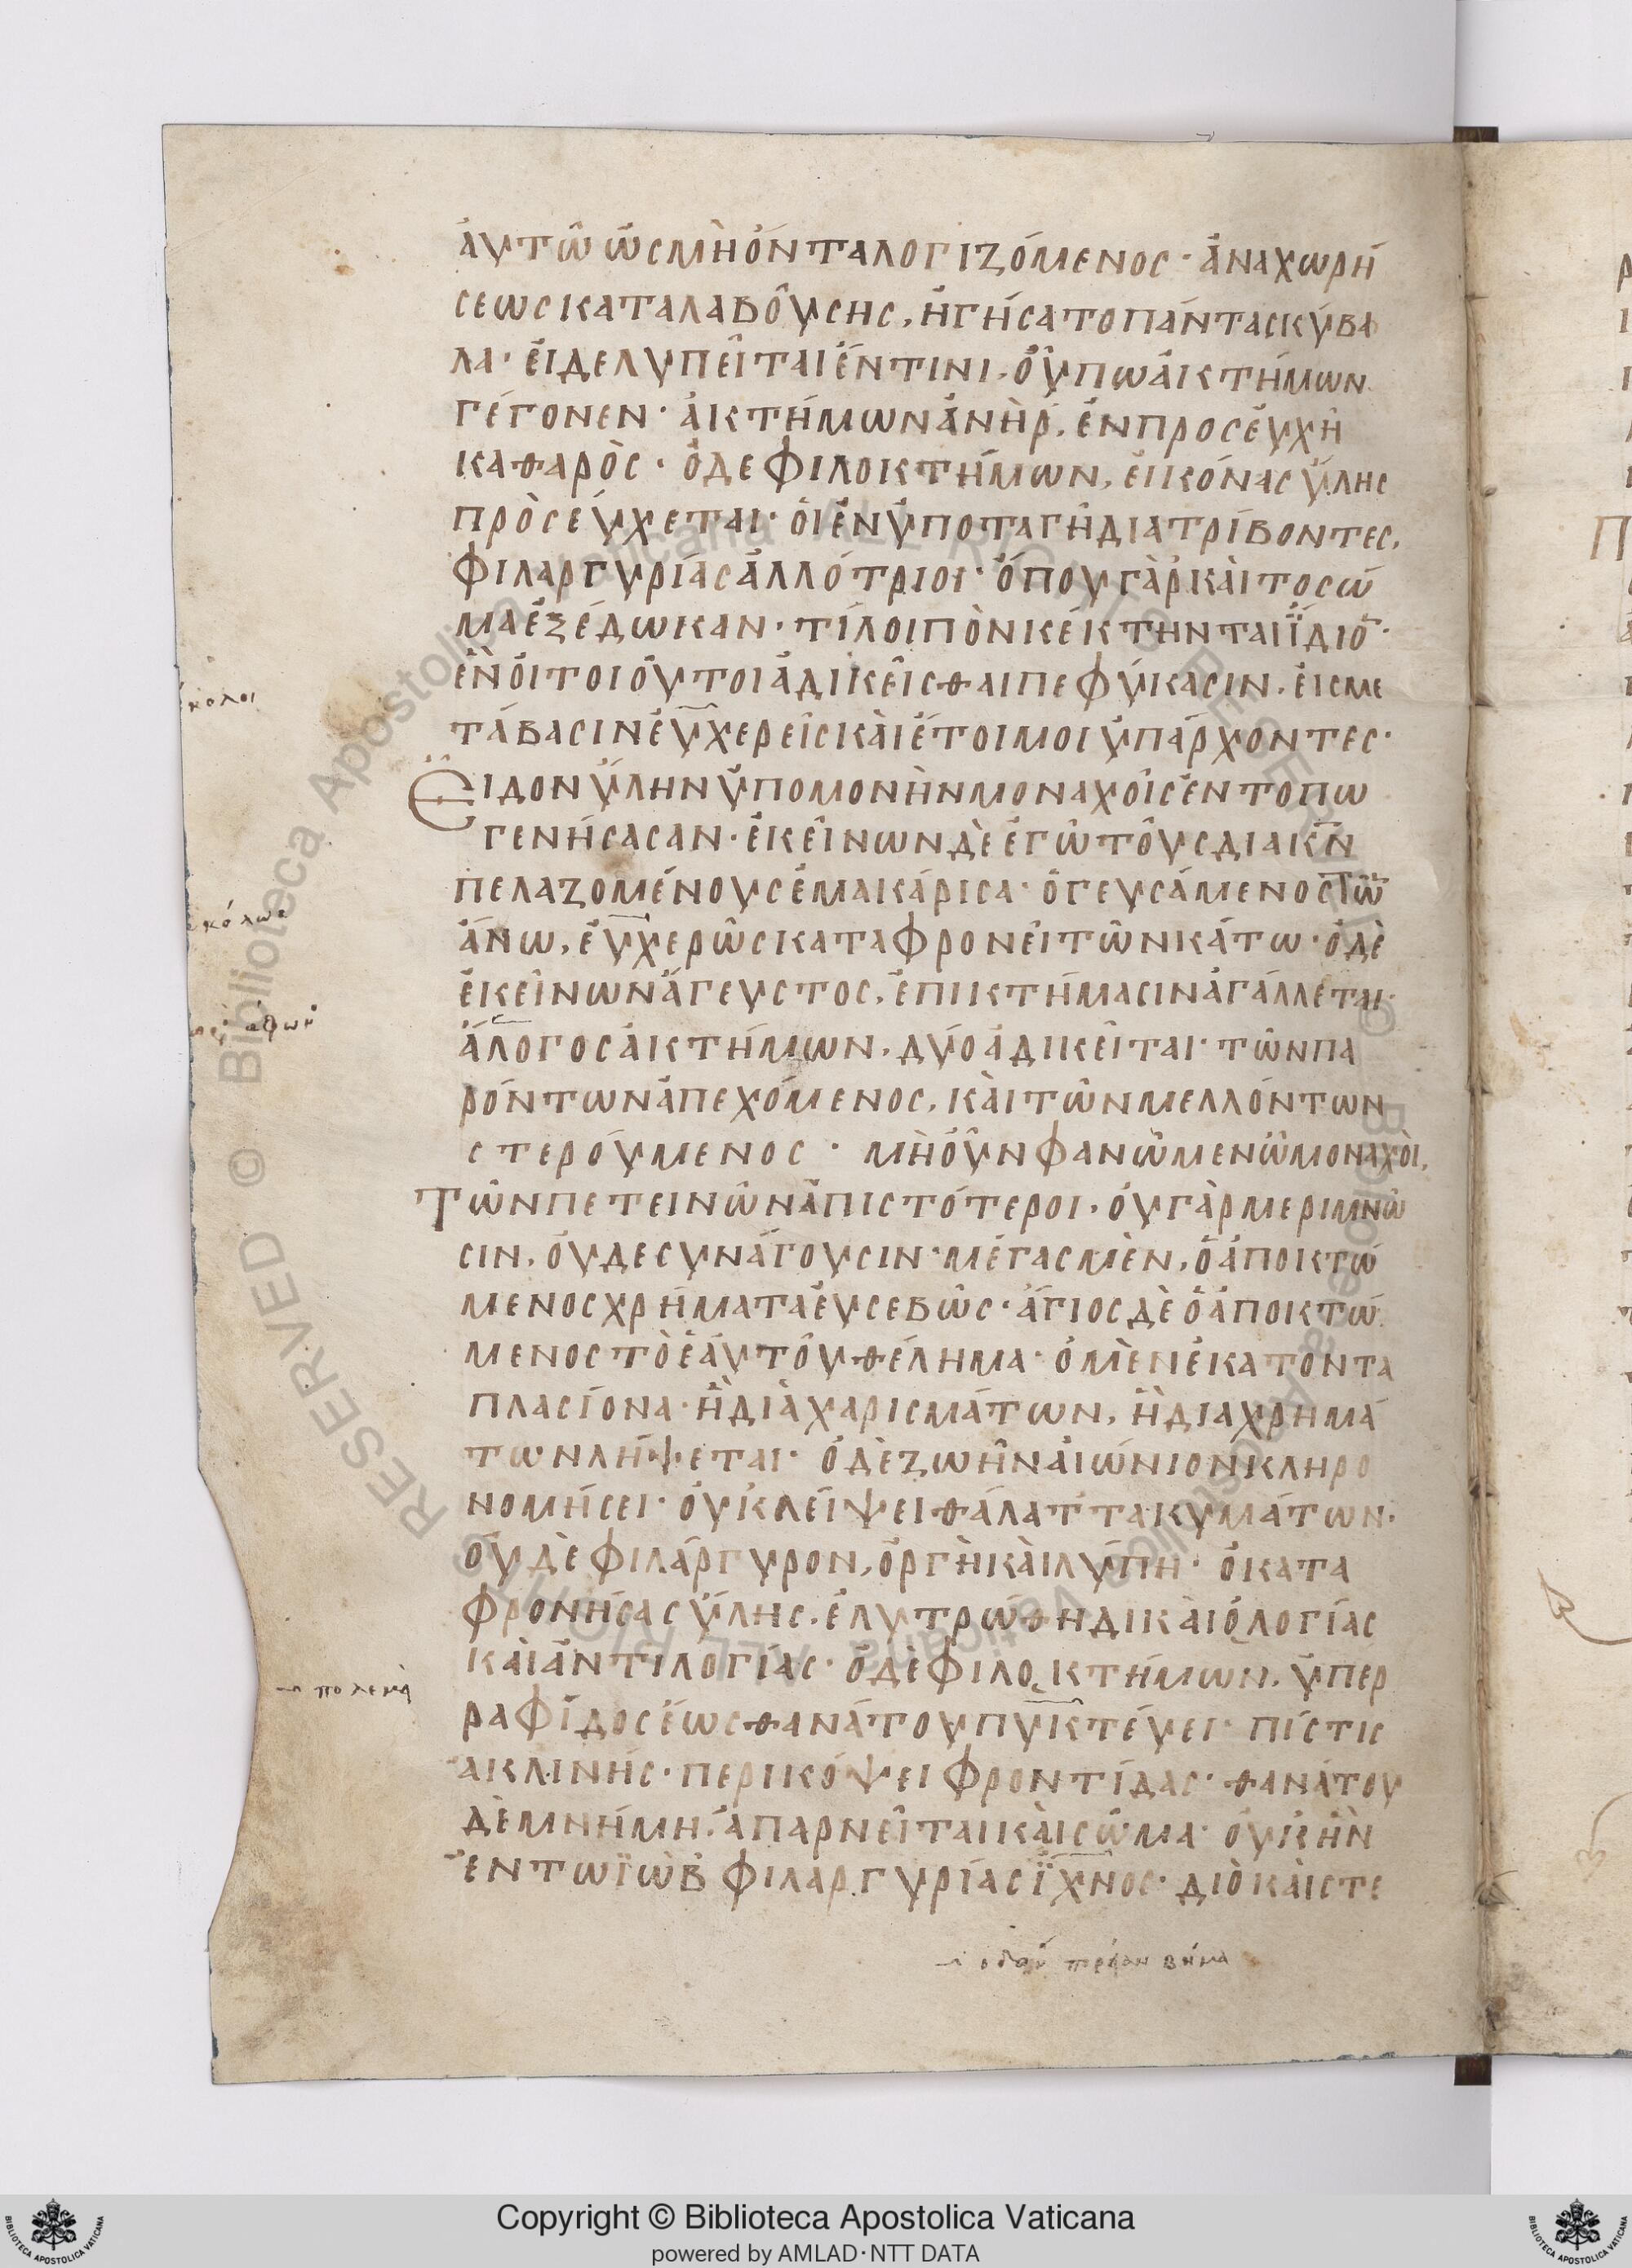 ἀυτῶ ὡς μὴ ὄντα λογιζόμενος· ἀναχωρή
σεως καταλαβόυσης, ἡγήσατο πάντα σκύβα
λα· ἐι δε λυπεῖται ἔν τινι, ὄυπω ἀκτήμων
γέγονεν· ἀκτήμων ἀνὴρ, ἐν προσευχῆ
καθαρὸς· ὁ δε φιλοκτήμων, ἐικόνας ὕλης
πρὸσέυχεται· ὁι ἐν ὑποταγῆ διατρίβοντες,
φιλαργυρίας ἀλλότριοι· ὅπου γὰρ κὰι το σῶ
μα ἐξέδωκαν· τί λοιπὸν κέκτηνται ἴδιο̅·
ἒν ὁ͂ι τοιοῦτοι ἀδικεῖσθαι πεφύκασιν, ἐις με
τάβασιν ἐυχερεῖς κὰι ἕτοιμοι ὑπάρχοντες·
Ἐιδον ὕλην ὑπομονὴν μοναχοῖς ἐν τοπω
γενήσασαν· ἐκείνων δὲ ἐγὼ τοὺς διακ̅ν̅
πελαζομένους ἐμακάρισα· ὁ γευσάμενος τῶ̅
ἄνω, ἐυχερῶς καταφρονεῖ τῶν κάτω· ὁ δὲ
ἐκείνων ἄγευστος, ἐπι κτήμασιν ἀγάλλεται·
ἄλογος ἀκτήμων, δύο ἀδικεῖται· τῶν πα
ρόντων ἀπεχόμενος, κὰι τῶν μελλόντων
στερόυμενος· μὴ ὀῦν φανῶμεν ὦ μοναχὸι,
τῶν πετεινῶν ἀπιστότεροι, ὀυ γὰρ μεριμνῶ
σιν, ὀυδε συνάγουσιν· μέγας μὲν, ὁ ἀποκτώ
μενος χρήματα ἐυσεβῶς· ἅγιος δὲ ὁ ἀποκτώ
μενος τὸ ἑαυτοῦ θέλημα· ὁ μὲν ἑκατοντα
πλασίονα· ἢ διὰ χαρισμάτων, ἢ δια χρημά
των λήψεται· ὁ δὲ ζωὴν ἀιώνιον κληρο
νομήσει· ὀυκ λείψει θάλαττα κυμάτων·
ὀυδὲ φιλάργυρον, ὀργὴ κὰι λύπη· ὁ κατα
φρονήσας ὕλης, ἐλυτρώθη δικαιολογίας
κὰι ἀντιλογίας· ὁ δὲ φιλοκτήμων, ὑπερ
ραφίδος ἕως θανάτου πυκτέυει· πίστις
ἀκλινής· περικόψει φροντίδας· θανάτου
δὲ μνήμη, ἀπαρνεῖται κὰι σῶμα· ὀυκ ἦν
ἐν τω ϊὼβ φιλαργυρίας ἴχνος· διὸ κὰι στε